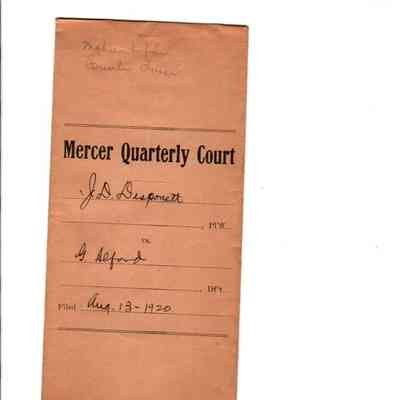 Mercer Quarterly Court
J. D. Desponett
, Pl'ff.
vs.
G. Alford
, Df't.
Filed Aug. 13 - 1920